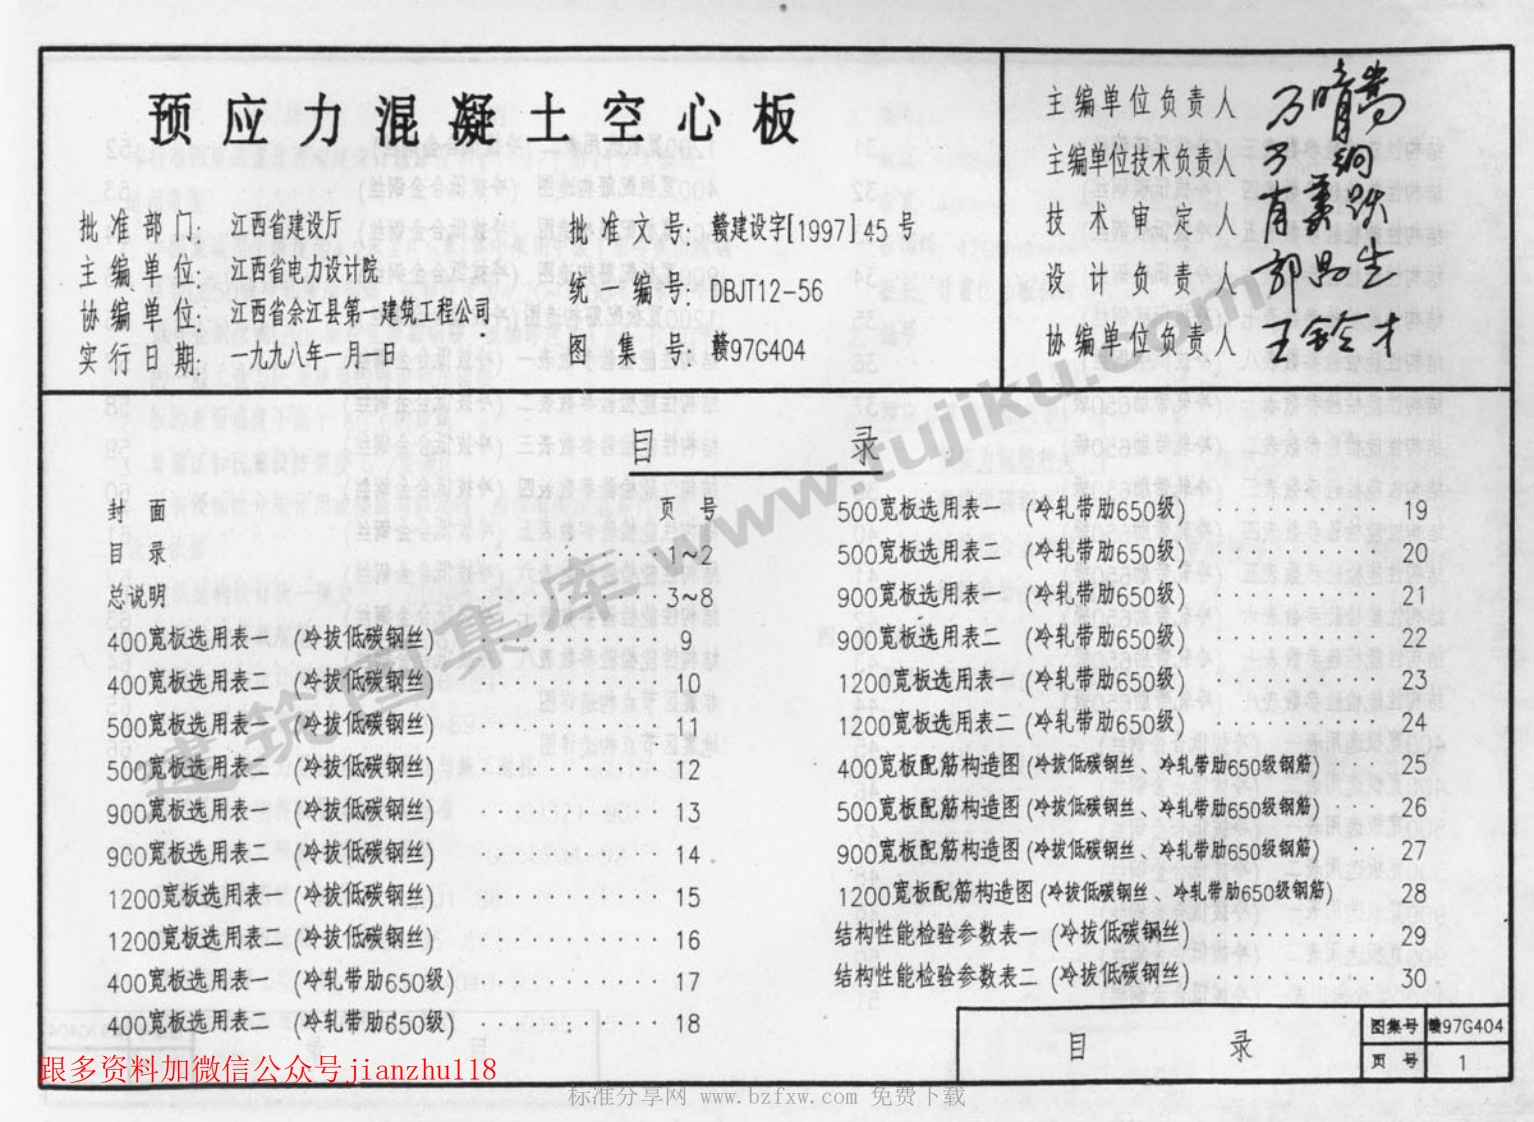 预应力混凝土空心板
批准部门: 江西省建设厅
主编单位: 江西省电力设计院
协编单位: 江西省余江县第一建筑工程公司
实行日期: 一九九八年一月一日
批准文号: 赣建设字[1997]45号
统一编号: DBJT12-56
图集号: 赣97G404
主编单位负责人
主编单位技术负责人
技术审定人
设计负责人
协编单位负责人
目录
封面 页号
目录 1~2
总说明 3~8
400宽板选用表一 (冷拔低碳钢丝) 9
400宽板选用表二 (冷拔低碳钢丝) 10
500宽板选用表一 (冷拔低碳钢丝) 11
500宽板选用表二 (冷拔低碳钢丝) 12
900宽板选用表一 (冷拔低碳钢丝) 13
900宽板选用表二 (冷拔低碳钢丝) 14
1200宽板选用表一 (冷拔低碳钢丝) 15
1200宽板选用表二 (冷拔低碳钢丝) 16
400宽板选用表一 (冷轧带肋650级) 17
400宽板选用表二 (冷轧带肋650级) 18
500宽板选用表一 (冷轧带肋650级) 19
500宽板选用表二 (冷轧带肋650级) 20
900宽板选用表一 (冷轧带肋650级) 21
900宽板选用表二 (冷轧带肋650级) 22
1200宽板选用表一 (冷轧带肋650级) 23
1200宽板选用表二 (冷轧带肋650级) 24
400宽板配筋构造图 (冷拔低碳钢丝、冷轧带肋650级钢筋) 25
500宽板配筋构造图 (冷拔低碳钢丝、冷轧带肋650级钢筋) 26
900宽板配筋构造图 (冷拔低碳钢丝、冷轧带肋650级钢筋) 27
1200宽板配筋构造图 (冷拔低碳钢丝、冷轧带肋650级钢筋) 28
结构性能检验参数表一 (冷拔低碳钢丝) 29
结构性能检验参数表二 (冷拔低碳钢丝) 30
目录
图集号 赣97G404
页号 1
建筑图集库 www.tujiku.com
跟多资料加微信公众号jianzhu118
标准分享网 www.bzfxw.com 免费下载